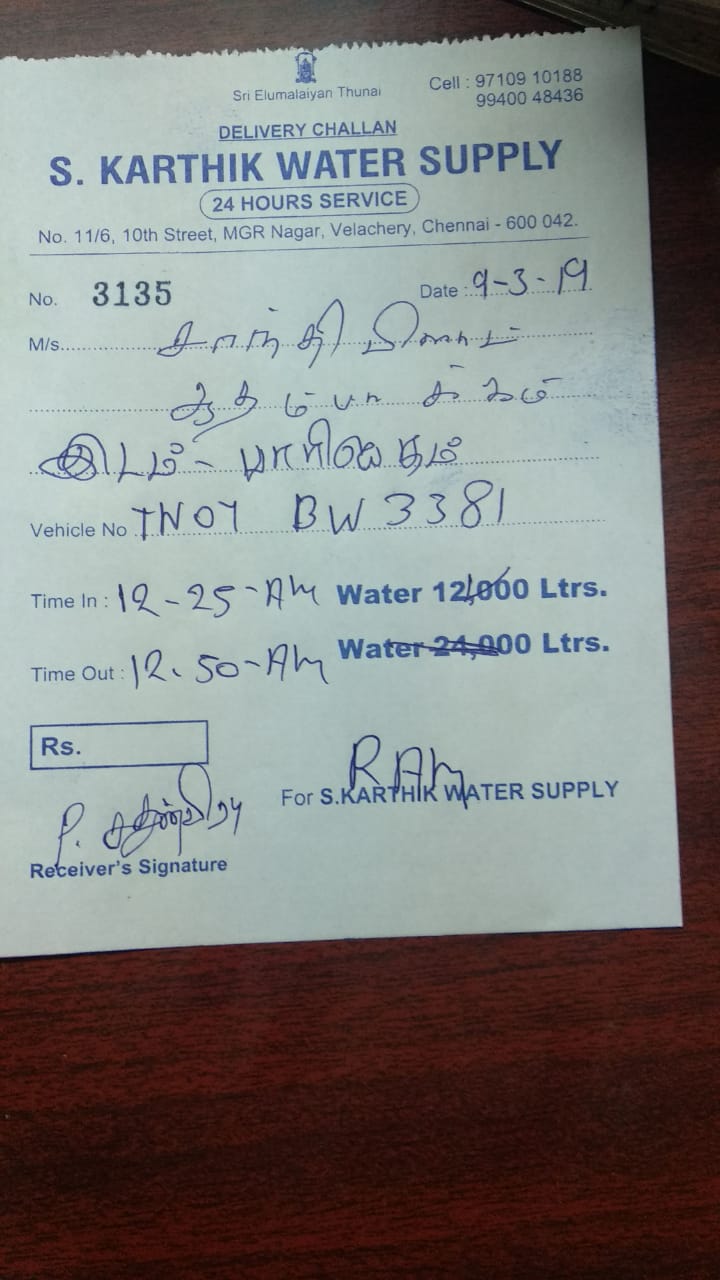 Sri Elumalaiyan Thunai
Cell : 97109 10188
99400 48436
DELIVERY CHALLAN
S. KARTHIK WATER SUPPLY
24 HOURS SERVICE
No. 11/6, 10th Street, MGR Nagar, Velachery, Chennai - 600 042.
No. 3135
Date : 9-3-19
M/s. சாந்தி
இடம் -
Vehicle No TN07 BW 3381
Time In : 12-25-AM Water 12,000 Ltrs.
Time Out : 12.50-AM Water 24,000 Ltrs.
Rs.
RAM
For S.KARTHIK WATER SUPPLY
P.
Receiver's Signature